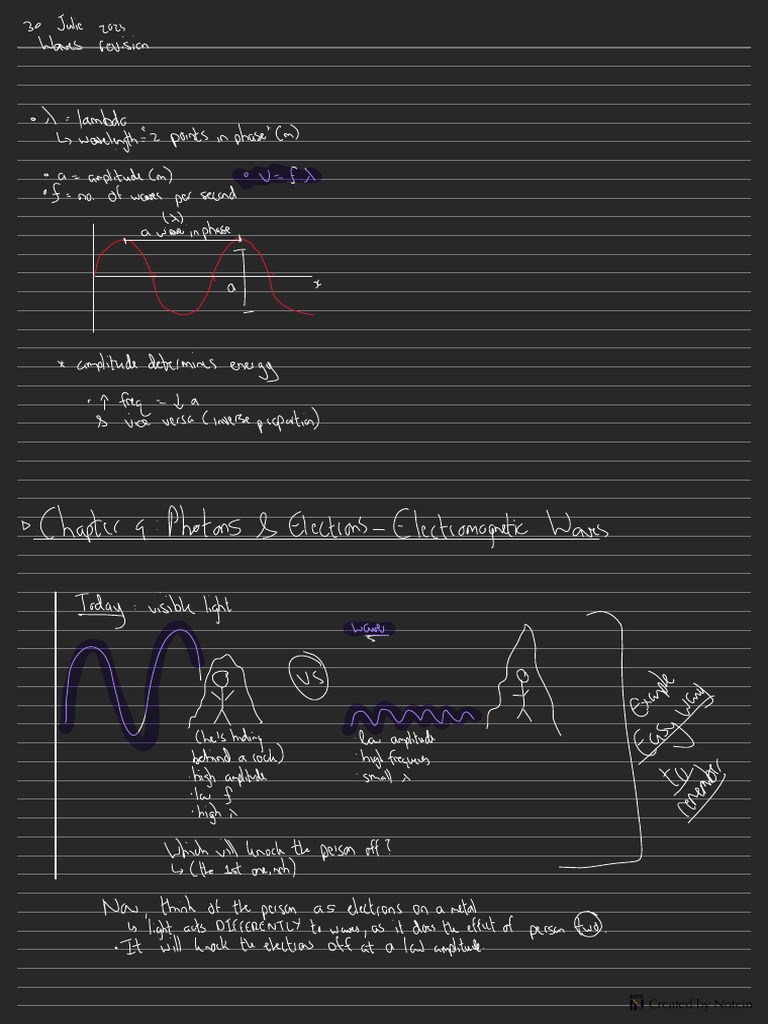 30 Julie 2025
Waves revision
• λ = lambda
↳ wavelength = "2 points in phase" (m)
• a = amplitude (m)
• v = f λ
• f = no. of waves per second
(λ)
a wave in phase
a
x
* amplitude determines energy
• ↑ freq = ↓ a
& vice versa (inverse proportion)
▷ Chapter 9: Photons & Electrons - Electromagnetic Waves
Today: visible light
wave
VS
(he's hiding
behind a rock)
• high amplitude
• low f
• high λ
• low amplitude
• high frequency
• small λ
Example
Easy way
to
remember
Which will knock the person off?
↳ (the 1st one, nah)
Now, think of the person as electrons on a metal
↳ light acts DIFFERENTLY to waves, as it does the effect of person two.
• It will knock the electrons off at a low amplitude.
Created by Notein